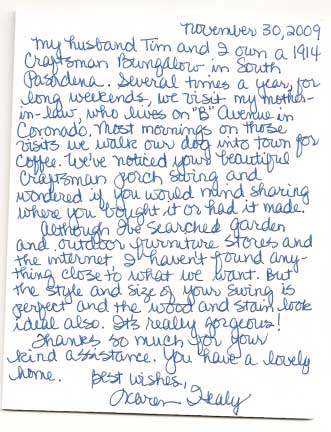 November 30, 2009
My husband Tim and I own a 1914
Craftsman Bungalow in South
Pasadena. Several times a year, for
long weekends, we visit my mother-
in-law, who lives on "B" Avenue in
Coronado. Most mornings on those
visits we walk our dog into town for
coffee. We've noticed your beautiful
Craftsman porch swing and
wondered if you would mind sharing
where you bought it or had it made.
Although I've searched garden
and outdoor furniture stores and
the internet, I haven't found any-
thing close to what we want. But
the style and size of your swing is
perfect and the wood and stain look
ideal also. It's really gorgeous!
Thanks so much for your
kind assistance. You have a lovely
home. Best wishes,
Karen Healy